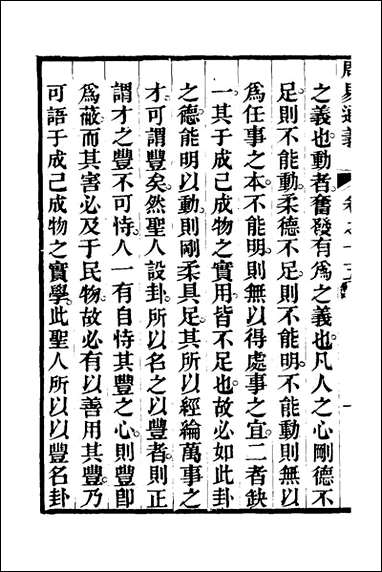 周易通義
卷之十五
之義也。動者。奮發有爲之義也。凡人之心剛德不
足。則不能動。柔德不足。則不能明。不能動則無以
爲任事之本。不能明。則無以得處事之宜。二者缺
一。其于成己成物之實用。皆不足也。故必如此卦
之德。能明以動。則剛柔具足。其所以經綸萬事之
才。可謂豐矣。然聖人設卦。所以名之以豐者。則正
謂才之豐不可恃。人一有自恃其豐之心。則豐卽
爲蔽。而其害必及于民物。故必有以善用其豐。乃
可語于成己成物之實學。此聖人所以以豐名卦